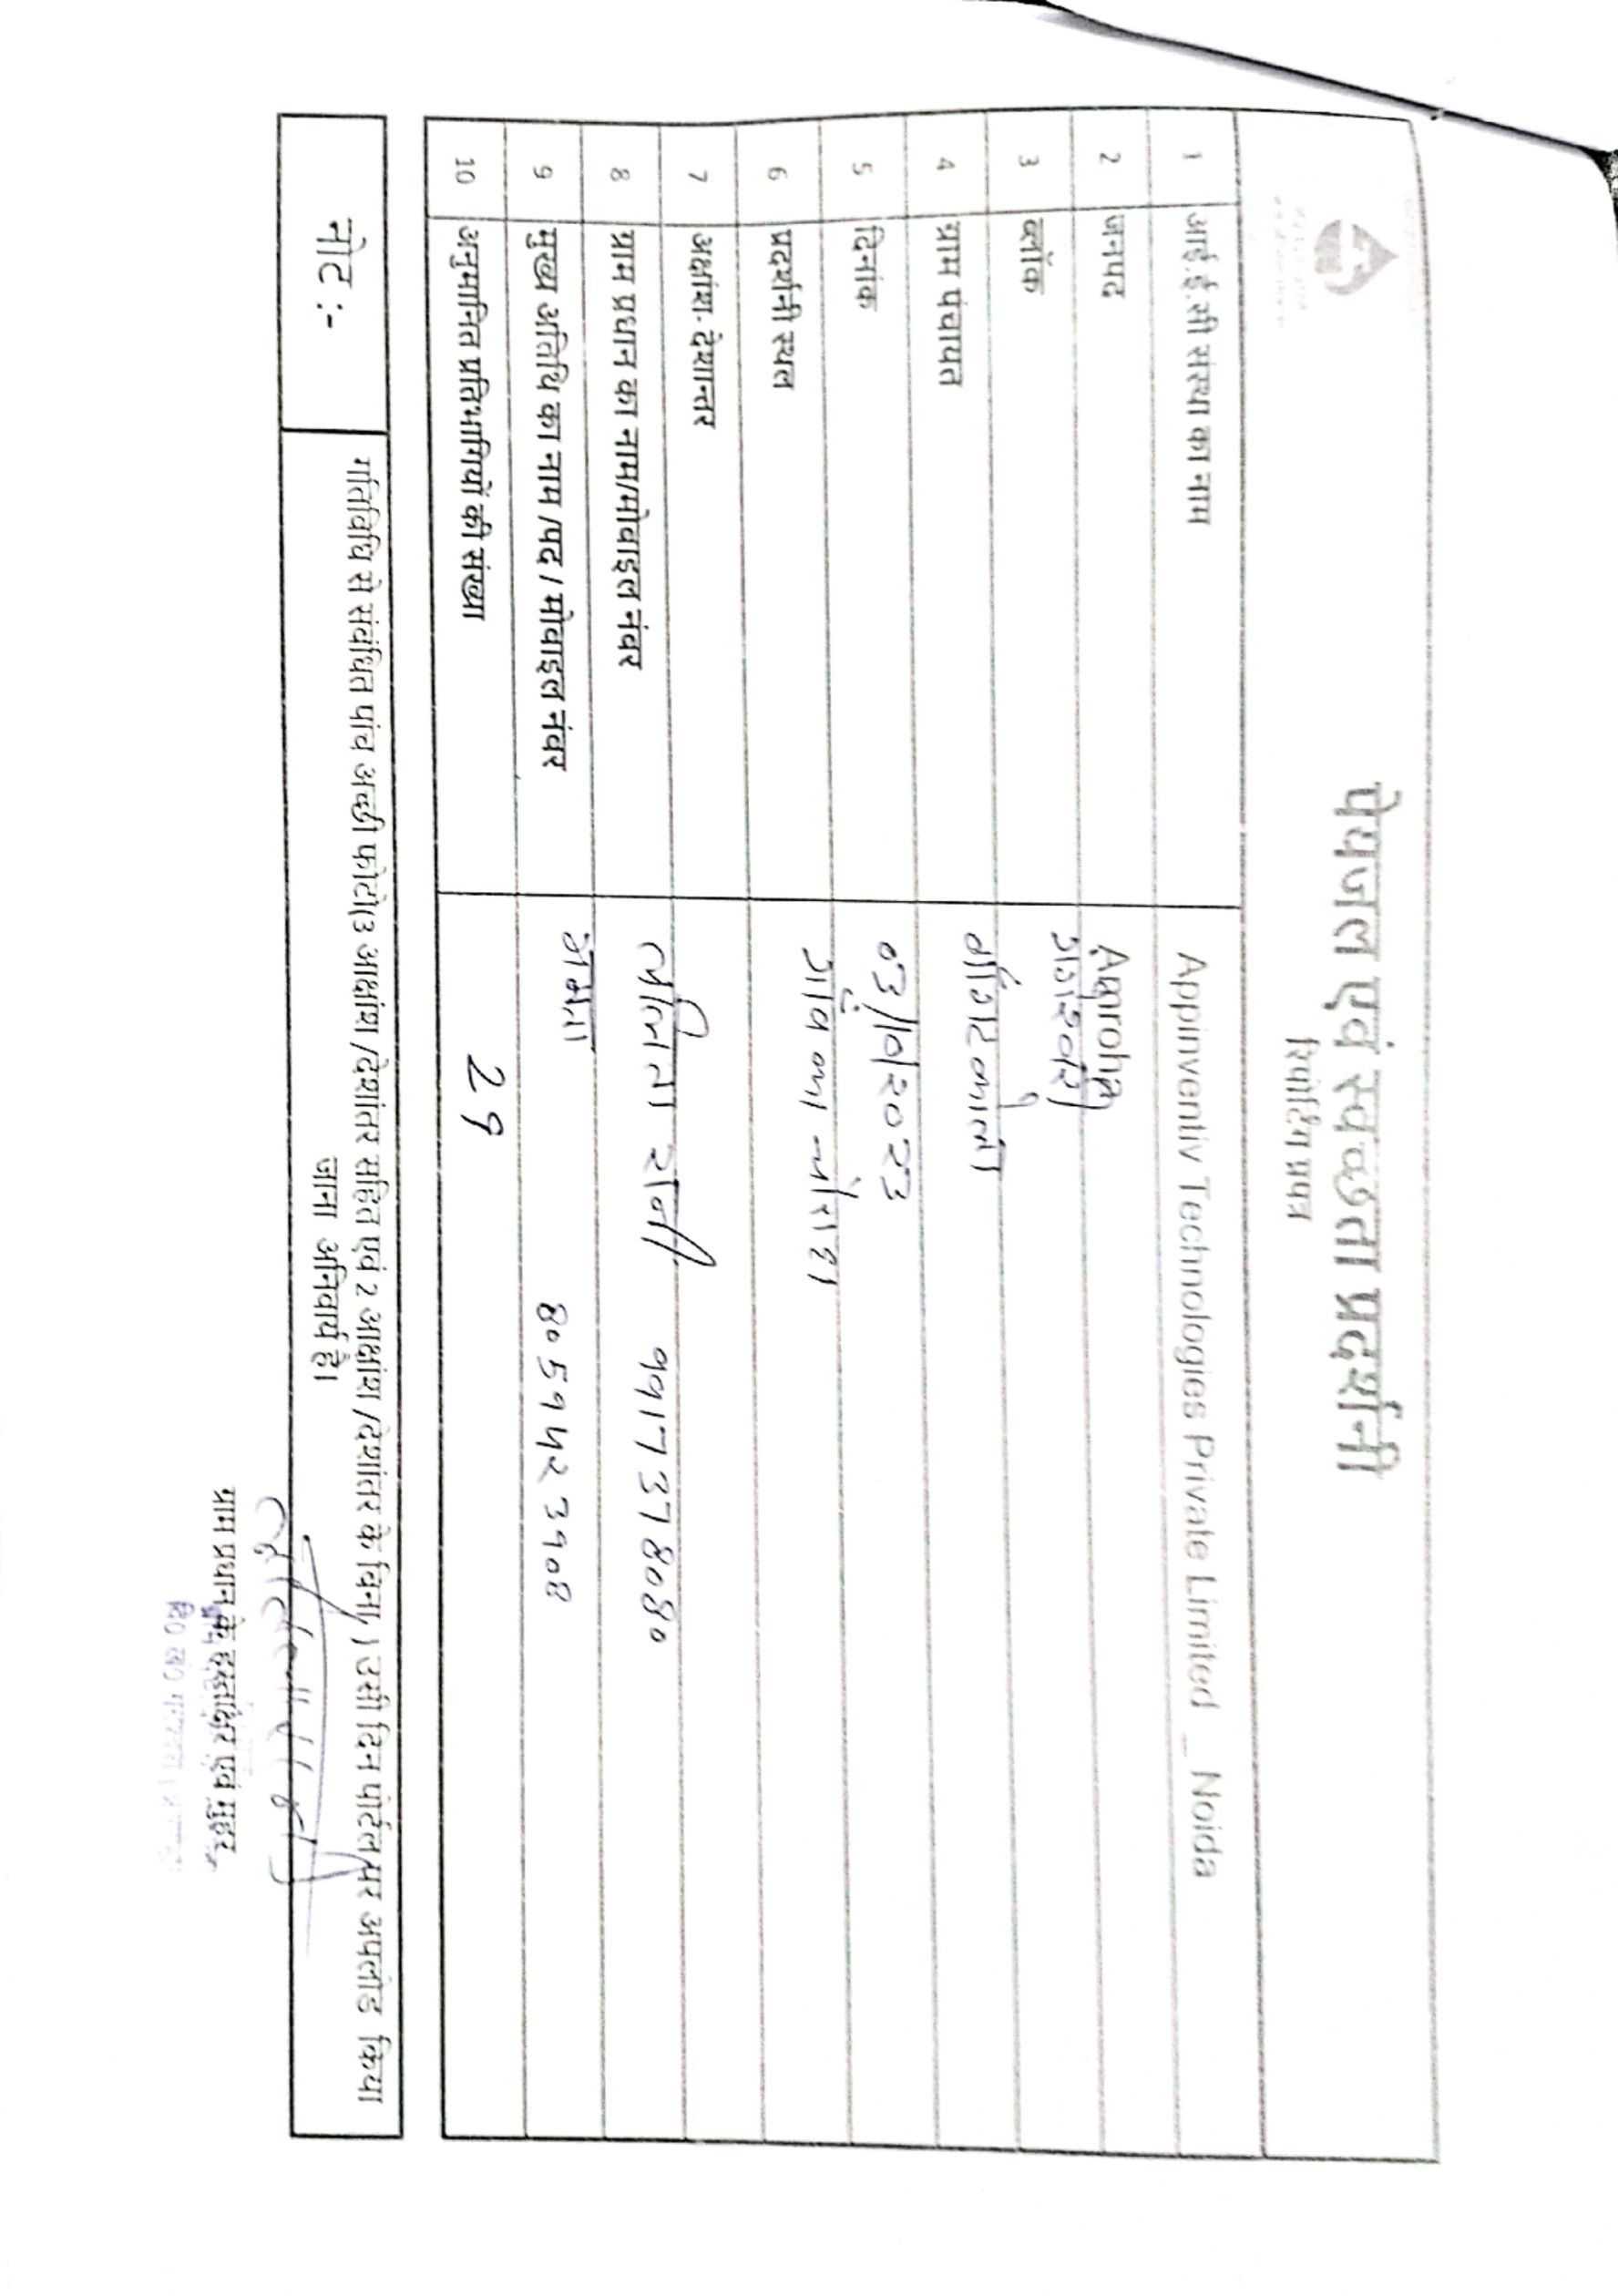 पेयजल एवं स्वच्छता प्रदर्शनी
रिपोर्टिंग प्रपत्र
1 आई.ई.सी संस्था का नाम Appinventiv Technologies Private Limited _ Noida
2 जनपद Amroha
3 ब्लॉक
4 ग्राम पंचायत
5 दिनांक
6 प्रदर्शनी स्थल गांव का चौराहा
7 अक्षांश-देशान्तर
8 ग्राम प्रधान का नाम/मोबाइल नंबर ललिता रानी 9917378080
9 मुख्य अतिथि का नाम /पद / मोबाइल नंबर ममता 8059523908
10 अनुमानित प्रतिभागियों की संख्या 29
नोट :- गतिविधि से संबंधित पांच अच्छी फोटो(3 आक्षांश /देशांतर सहित एवं 2 आक्षांश /देशांतर के बिना, ) उसी दिन पोर्टल पर अपलोड किया
जाना अनिवार्य है।
ग्राम प्रधान के हस्ताक्षर एवं मुहर